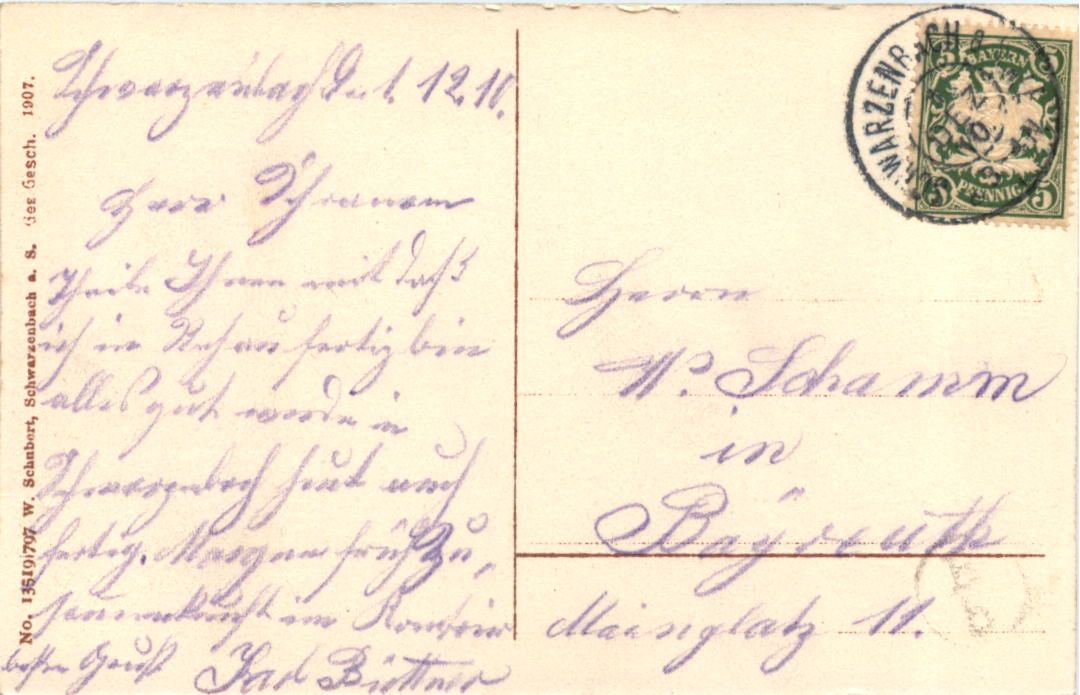 Schwarzenbach d. 1. 12. 10.
Herr Schramm
Theile Ihnen mit daß
ich in Rehau fertig bin
alles gut werde in
Schwarzenbach heut auch
fertig. Morgen früh Zu„
sammenkunft im
besten Gruß
Büttner
No. 13519 1707 W. Schubert, Schwarzenbach a. S. Ges. Gesch. 1907.
SCHWARZENBACH
BAYERN
5 5
PFENNIG
5 5
Herrn
W. Schamm
in
Bayreuth
Mainplatz 11.